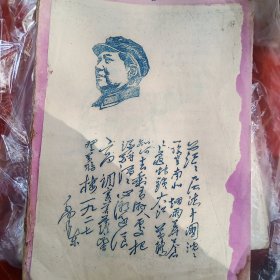 茫茫九派流中國沉
沉一线穿南北烟雨莽苍
苍龟蛇锁大江黄鹤
知何去剩有游人处把
酒酹滔滔心潮逐浪
高 调寄菩萨蛮
登黄鹤楼 一九二七
毛泽东